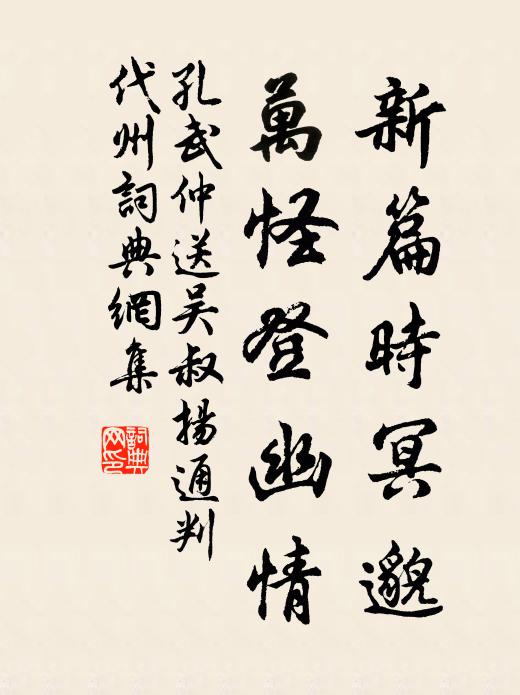 新篇時冥邈
萬怪登幽情
孔武仲送吴叔揚通判
代州詞典網集
詞典
网印